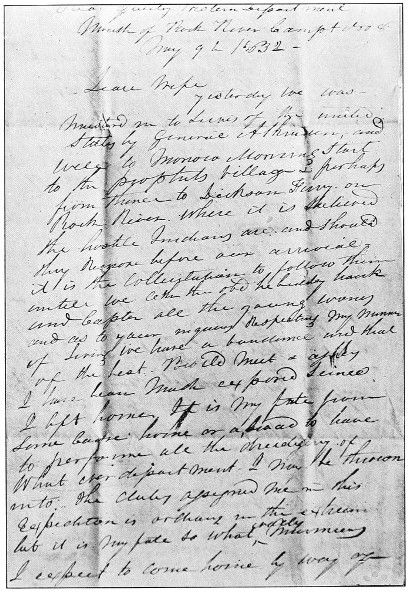 Head quarters Western Department
Mouth of Rock River Camp
May 9th 1832 —
Deare Wife
yesterday we was
Mustard in to Servis of the united
States by General Atkinson, and
Will to Morrow Morning Start
to the prophets village & perhaps
from thence to Dicksons Ferry on
Rock River Where it is believed
the hostile Indians are and Should
they Remove before our arrival
it is the Calculation to follow them
untill we the old he
and Capter all the young wons
and as to your inquiry Respecting My Manner
of Living we have a bundance and that
of the best. Bread Meat &
I have bean Much exposed Scince
I left home, It is My fate from
Some Cause home or abroad to have
to performe all the drudgery of
What ever department I May be thrown
into. the dutys assigned me in this
Expedition is ardious in the extream
but it is My fate So What,
I expect to Come home by way of